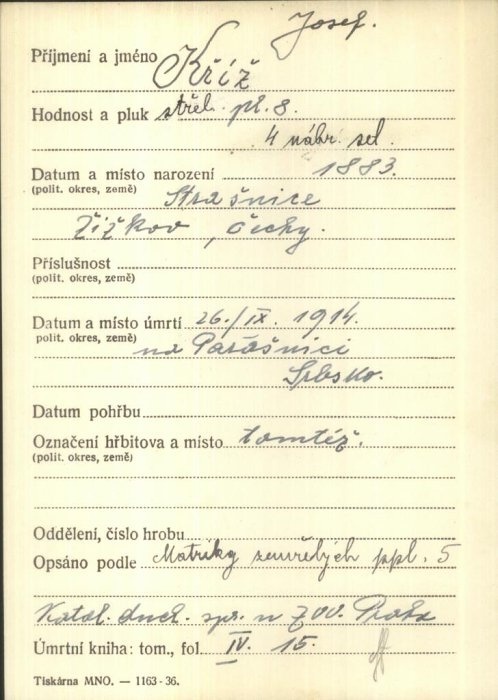 Josef.
Příjmení a jméno Kříž
Hodnost a pluk střel. pl. 8.
4 náhr. set.
Datum a místo narození 1883.
(polit. okres, země) Strašnice
Žižkov, Čechy.
Příslušnost
(polit. okres, země)
Datum a místo úmrtí 26./IX. 1914.
polit. okres, země) na Parašnici
Srbsko.
Datum pohřbu
Označení hřbitova a místo tamtéž.
(polit. okres, země)
Oddělení, číslo hrobu
Opsáno podle Matriky zemřelých ppl. 5
Katol. duch. spr. u ZVV. Praha
Úmrtní kniha: tom., fol. IV. 15.
Tiskárna MNO. — 1163-36.